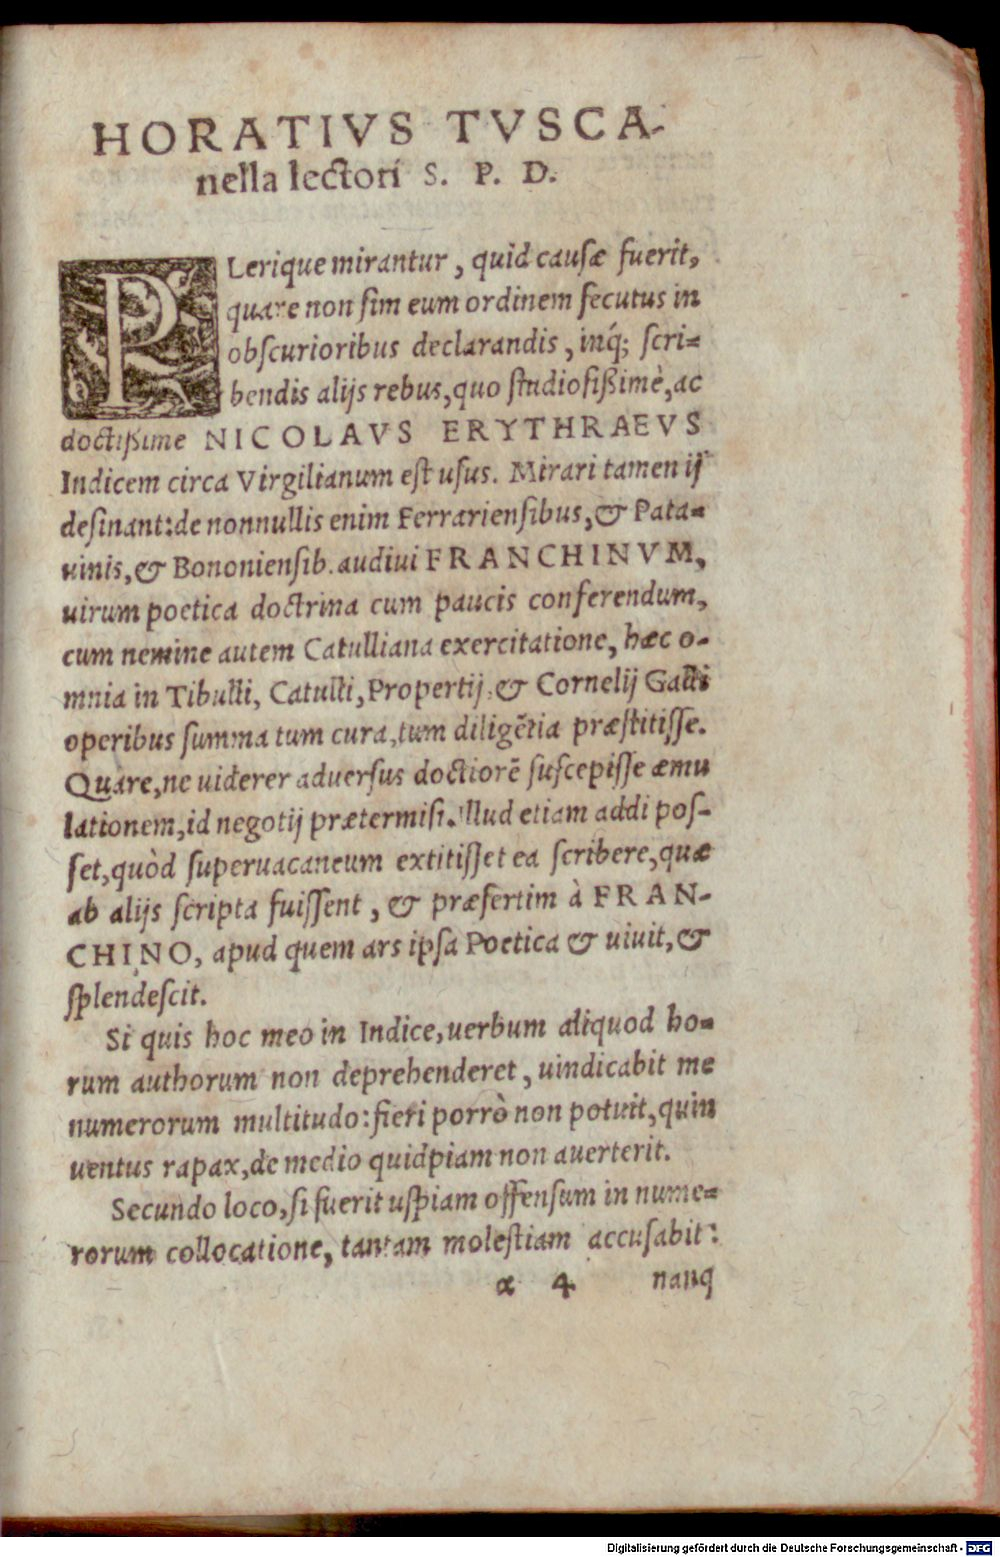 HORATIVS TVSCA-
nella lectori S. P. D.
PLerique mirantur, quid causæ fuerit,
quare non sim eum ordinem secutus in
obscurioribus declarandis, inq́; scri-
bendis alijs rebus, quo studiosißimè, ac
doctißime NICOLAVS ERYTHRAEVS
Indicem circa Virgilianum est usus. Mirari tamen ij
desinant: de nonnullis enim Ferrariensibus, & Pata-
uinis, & Bononiensib. audiui FRANCHINVM,
uirum poetica doctrina cum paucis conferendum,
cum nemine autem Catulliana exercitatione, hæc o-
mnia in Tibulli, Catulli, Propertij, & Cornelij Galli
operibus summa tum cura, tum diligẽtia præstitisse.
Quare, ne uiderer aduersus doctiorẽ suscepisse æmu
lationem, id negotij prætermisi. Illud etiam addi pos-
set, quòd superuacaneum extitisset ea scribere, quæ
ab alijs scripta fuissent, & præsertim à FRAN-
CHINO, apud quem ars ipsa Poetica & uiuit, &
splendescit.
Si quis hoc meo in Indice, uerbum aliquod ho-
rum authorum non deprehenderet, uindicabit me
numerorum multitudo: fieri porrò non potuit, quin
uentus rapax, de medio quidpiam non auerterit.
Secundo loco, si fuerit uspiam offensum in nume-
rorum collocatione, tantam molestiam accusabit:
α 4 nanq
Digitalisierung gefördert durch die Deutsche Forschungsgemeinschaft - DFG